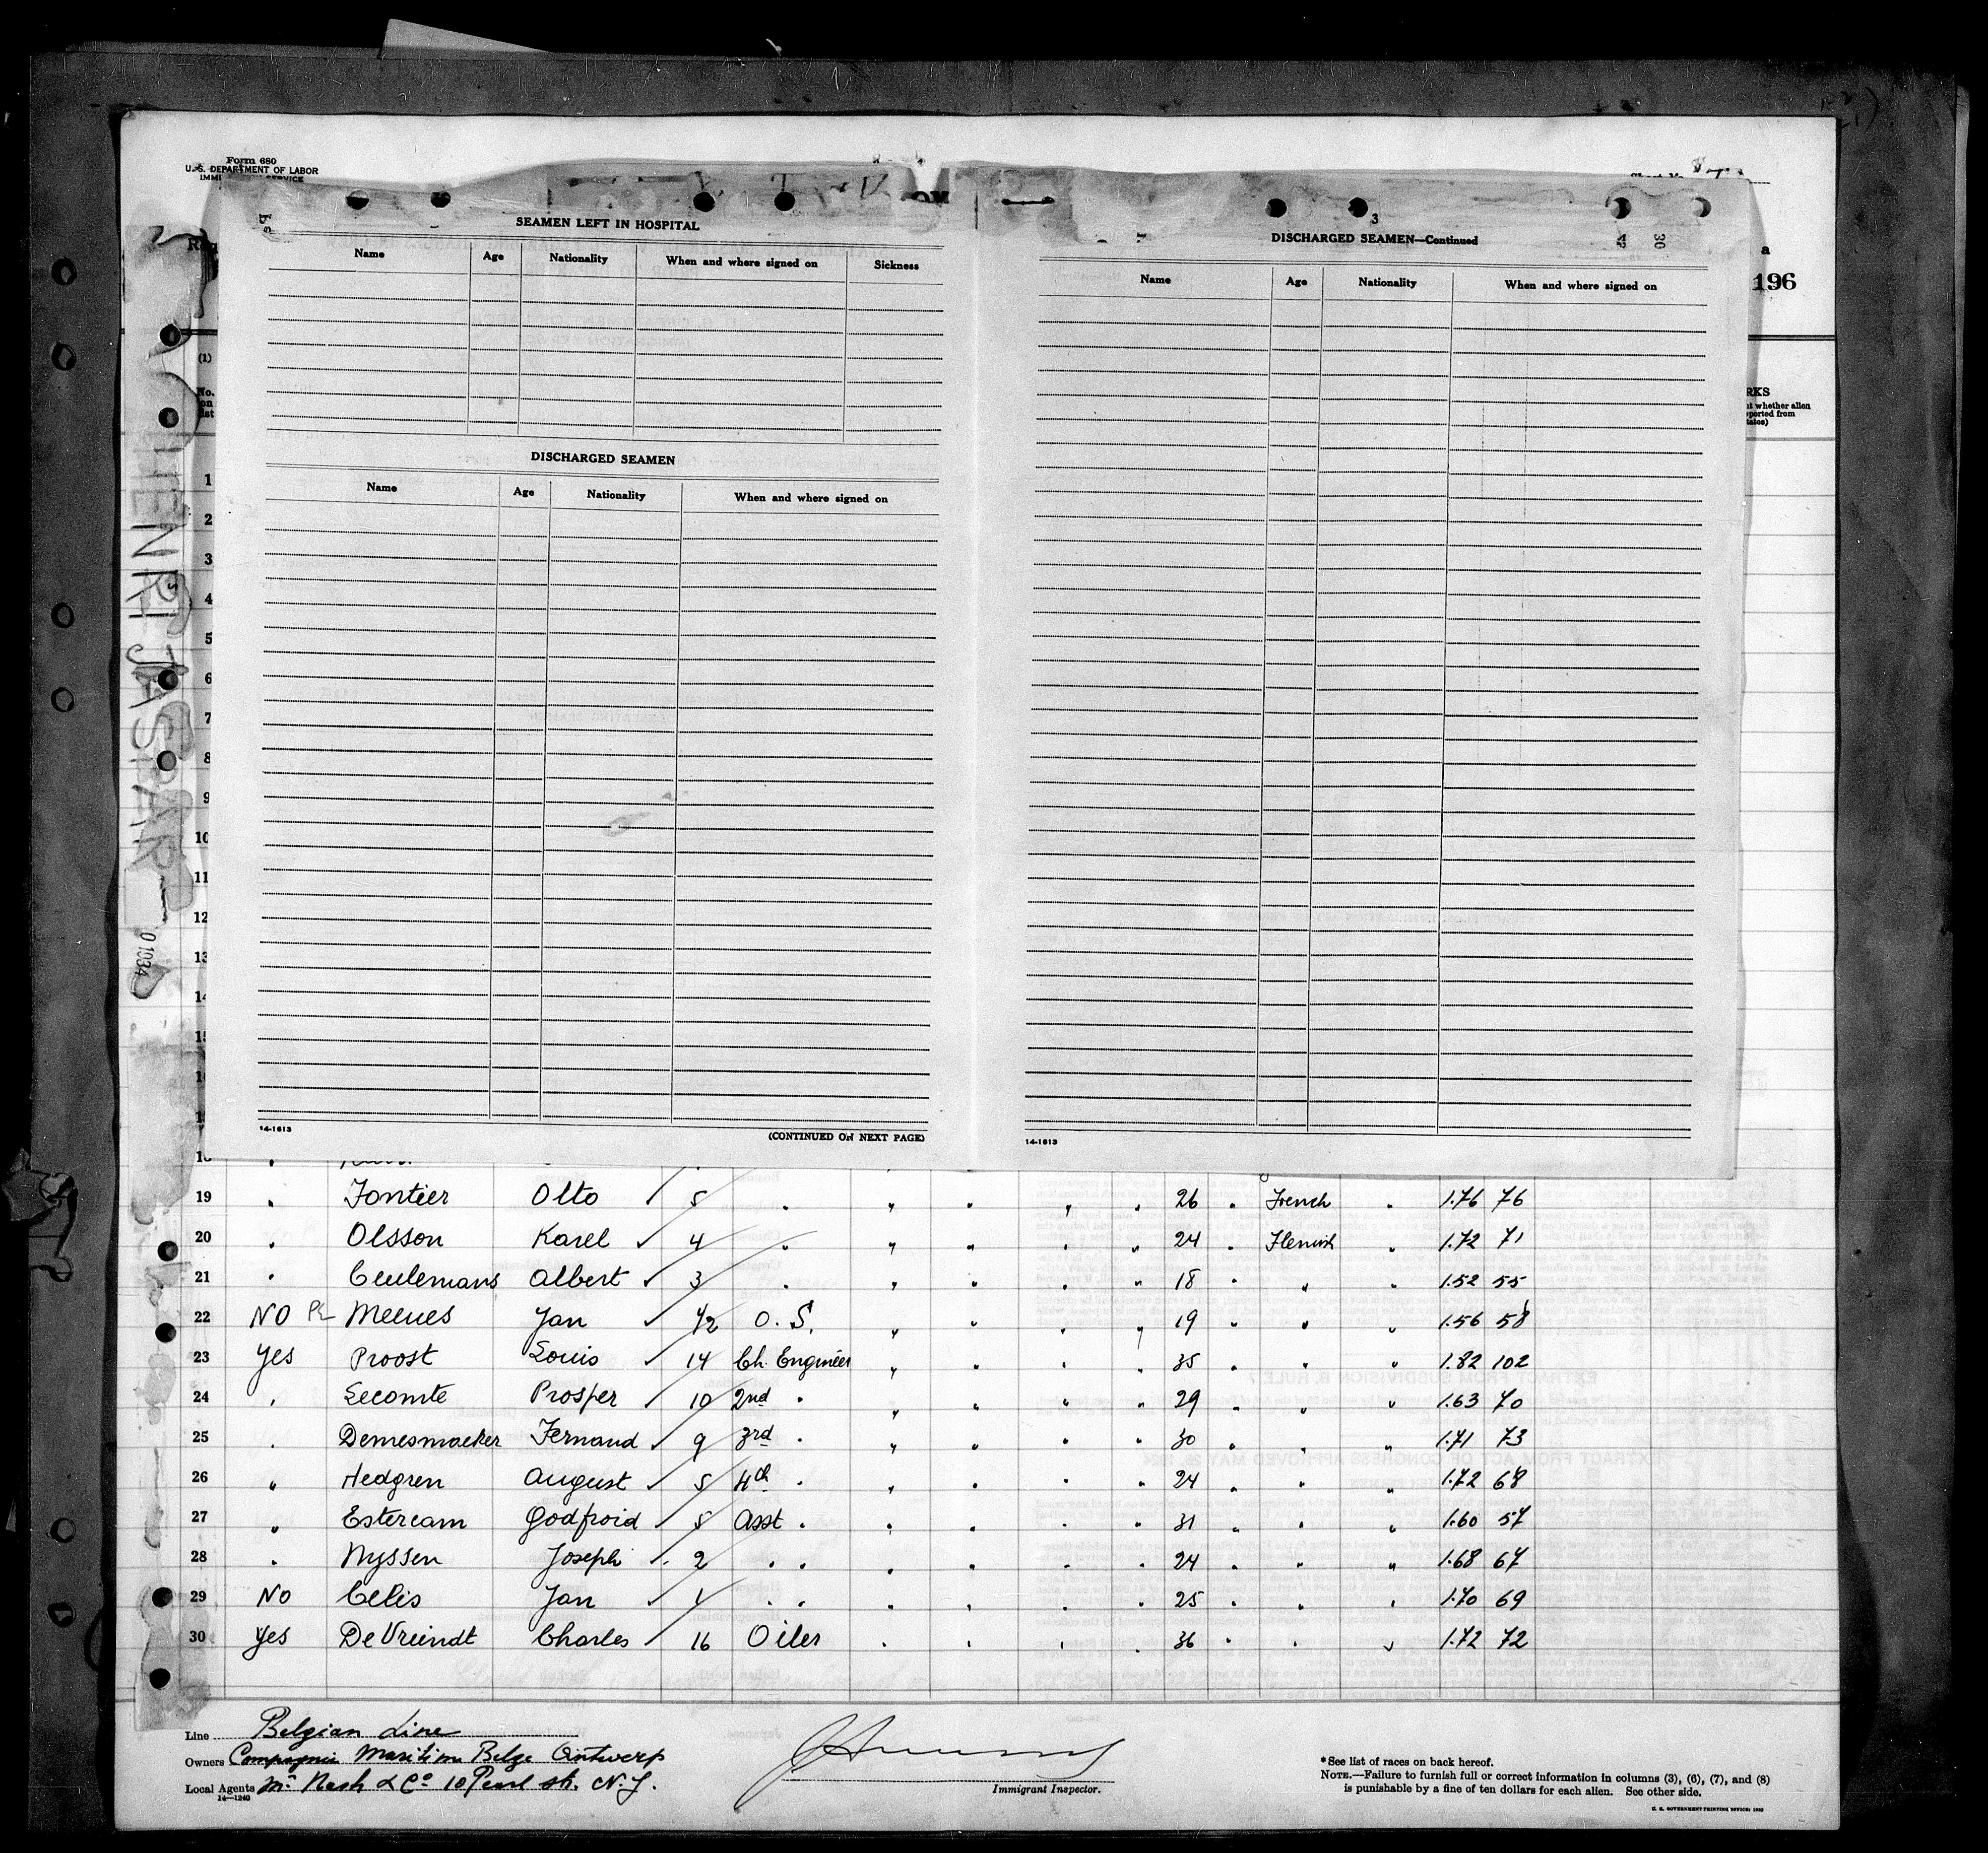 Form 680
U. S. DEPARTMENT OF LABOR
196
(1)
No. on list
RKS
SEAMEN LEFT IN HOSPITAL
Name Age Nationality When and where signed on Sickness
DISCHARGED SEAMEN
Name Age Nationality When and where signed on
14-1613
(CONTINUED ON NEXT PAGE)
3
DISCHARGED SEAMEN—Continued
Name Age Nationality When and where signed on
14-1613
HENRI JASPAR
01034
1
2
3
4
5
6
7
8
9
10
11
12
13
14
15
19 " Fontier Otto ✓ 5 " " " " " 26 " French " 1.76 76
20 " Olsson Karel ✓ 4 " " " " " 24 " Flemish " 1.72 71
21 " Ceulemans Albert ✓ 3 " " " " " 18 " " " 1.52 55
22 NO Meeues Jan ✓ 1/2 O. S. " " " " 19 " " " 1.56 58
23 Yes Proost Louis ✓ 14 Ch. Engineer " " " " 35 " " " 1.82 102
24 " Lecomte Prosper ✓ 10 2nd " " " " " 29 " " " 1.63 70
25 " Demesmaeker Fernand ✓ 9 3rd " " " " " 30 " " " 1.71 73
26 " Hedgren August ✓ 5 4th " " " " " 24 " " " 1.72 68
27 " Estercam Godfroid ✓ 5 Asst " " " " " 31 " " " 1.60 57
28 " Nyssen Joseph ✓ 2 " " " " " " 24 " " " 1.68 67
29 NO Celis Jan ✓ 1 " " " " " " 25 " " " 1.70 69
30 Yes De Vriendt Charles ✓ 16 Oiler " " " " 36 " " " 1.72 72
Line Belgian Line
Owners Compagnie Maritime Belge Antwerp
Local Agents Mr Nash & Co 10 Pearl str. N.Y.
14—1240
Immigrant Inspector.
*See list of races on back hereof.
NOTE.—Failure to furnish full or correct information in columns (3), (6), (7), and (8)
is punishable by a fine of ten dollars for each alien. See other side.